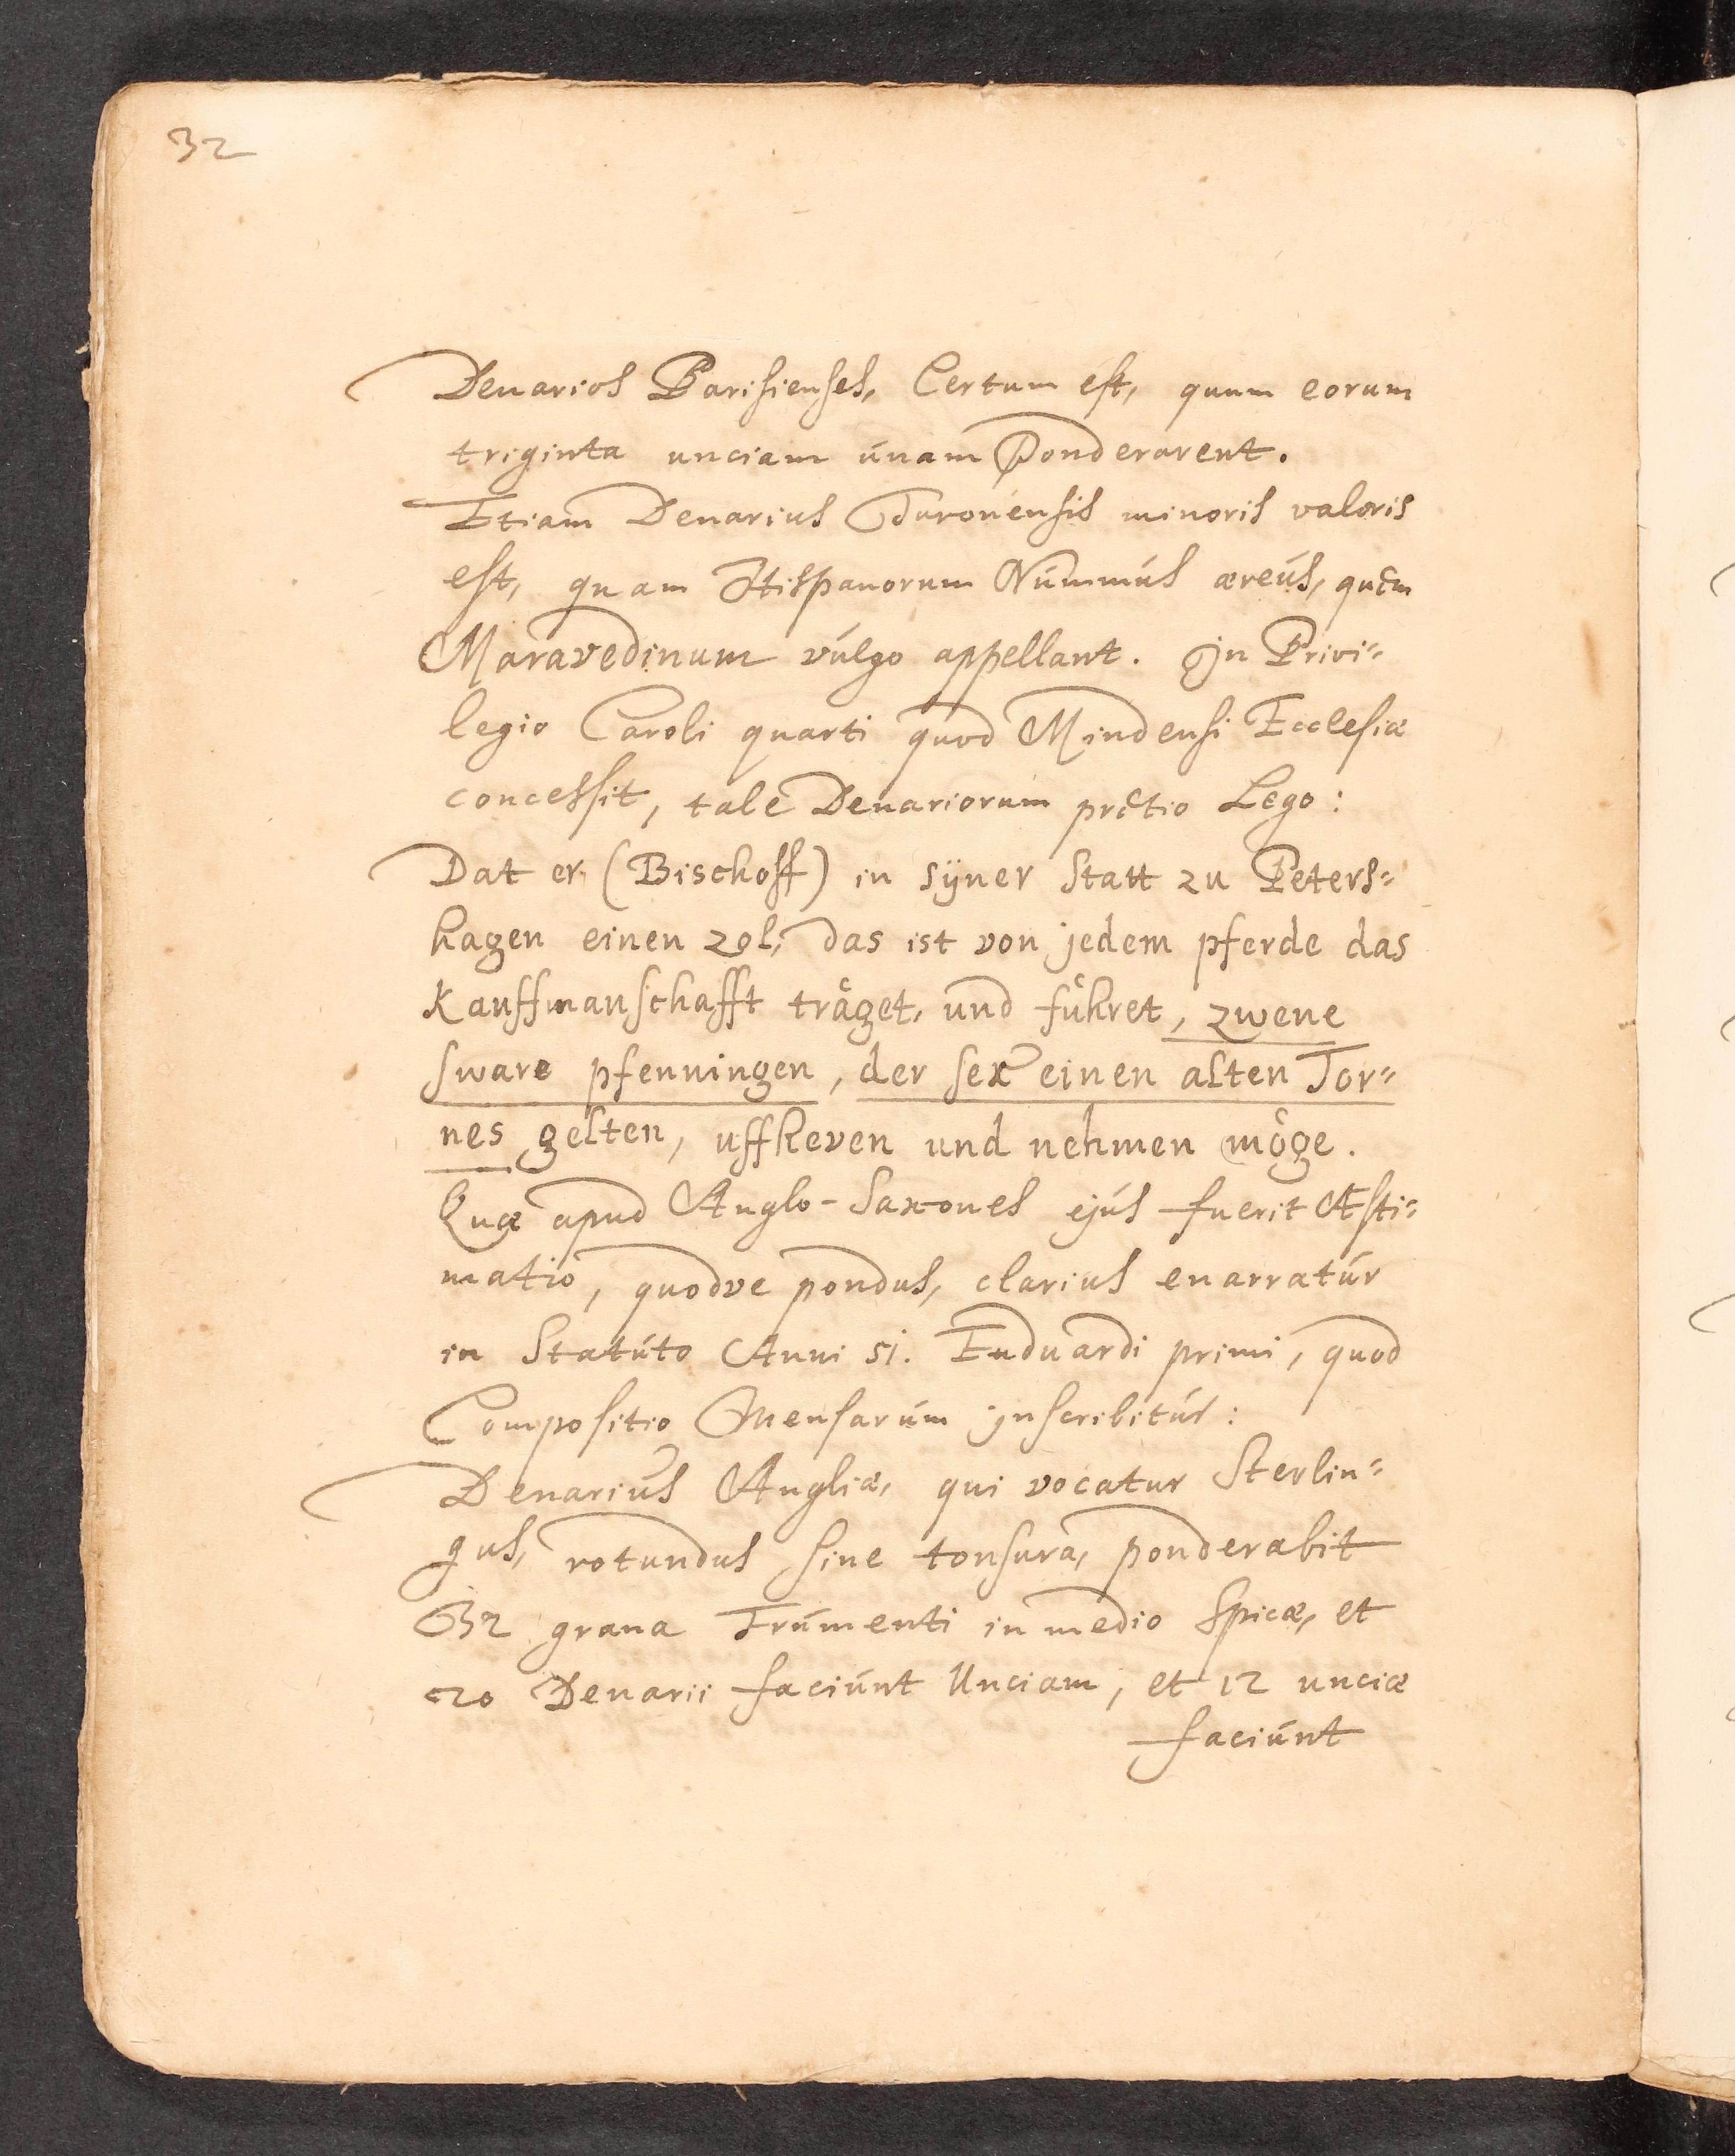 32
Denarios Parisienses, Certum est, quum eorum
triginta unciam únam Ponderarent.
Etiam Denarius Turonensis minoris valoris
est, quam Hispanorum Númmús æreús, quem
Maravedinum vúlgo appellant. In Privi-
legio Caroli quarti quod Mindensi Ecclesiæ
concessit, tale Denariorum prętio Lego:
Dat er (Bischoff) in sÿner Statt zu Peters-
hagen einen zol, das ist von jedem pferde das
Kauffmanschafft träget, und führet, zwene
sware pfenningen, der sex einen alten Tor-
nes gelten, uffheven und nehmen möge.
Quæ apud Anglo-Saxones ejús fuerit Æsti-
matio, quodve pondus, clarius enarratúr
in Statúto Anni 51. Euduardi primi, quod
Compositio Mensarúm jnscribitúr:
Denariús Angliæ, qui vocatur Sterlin-
gus, rotundus sine tonsura, ponderabit
32 grana Frúmenti in medio Spicæ, et
20 Denarii faciúnt Unciam, et 12 unciæ
faciúnt